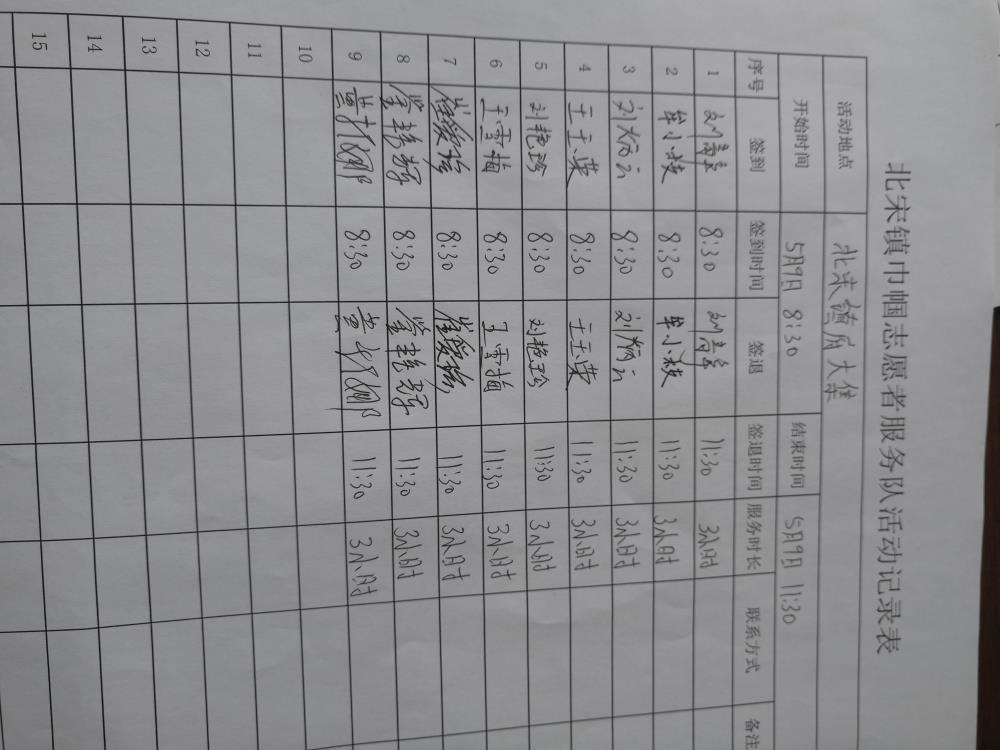 北宋镇巾帼志愿者服务队活动记录表
活动地点 北宋镇府大集
开始时间 5月9日 8:30 结束时间 5月9日 11:30
序号 签到 签到时间 签退 签退时间 服务时长 联系方式 备注
1 8:30 11:30 3小时
2 牟小枝 8:30 牟小枝 11:30 3小时
3 刘炳云 8:30 刘炳云 11:30 3小时
4 王玉荣 8:30 王玉荣 11:30 3小时
5 刘艳玲 8:30 刘艳玲 11:30 3小时
6 王雪梅 8:30 王雪梅 11:30 3小时
7 崔爱玲 8:30 崔爱玲 11:30 3小时
8 8:30 11:30 3小时
9 8:30 11:30 3小时
10
11
12
13
14
15